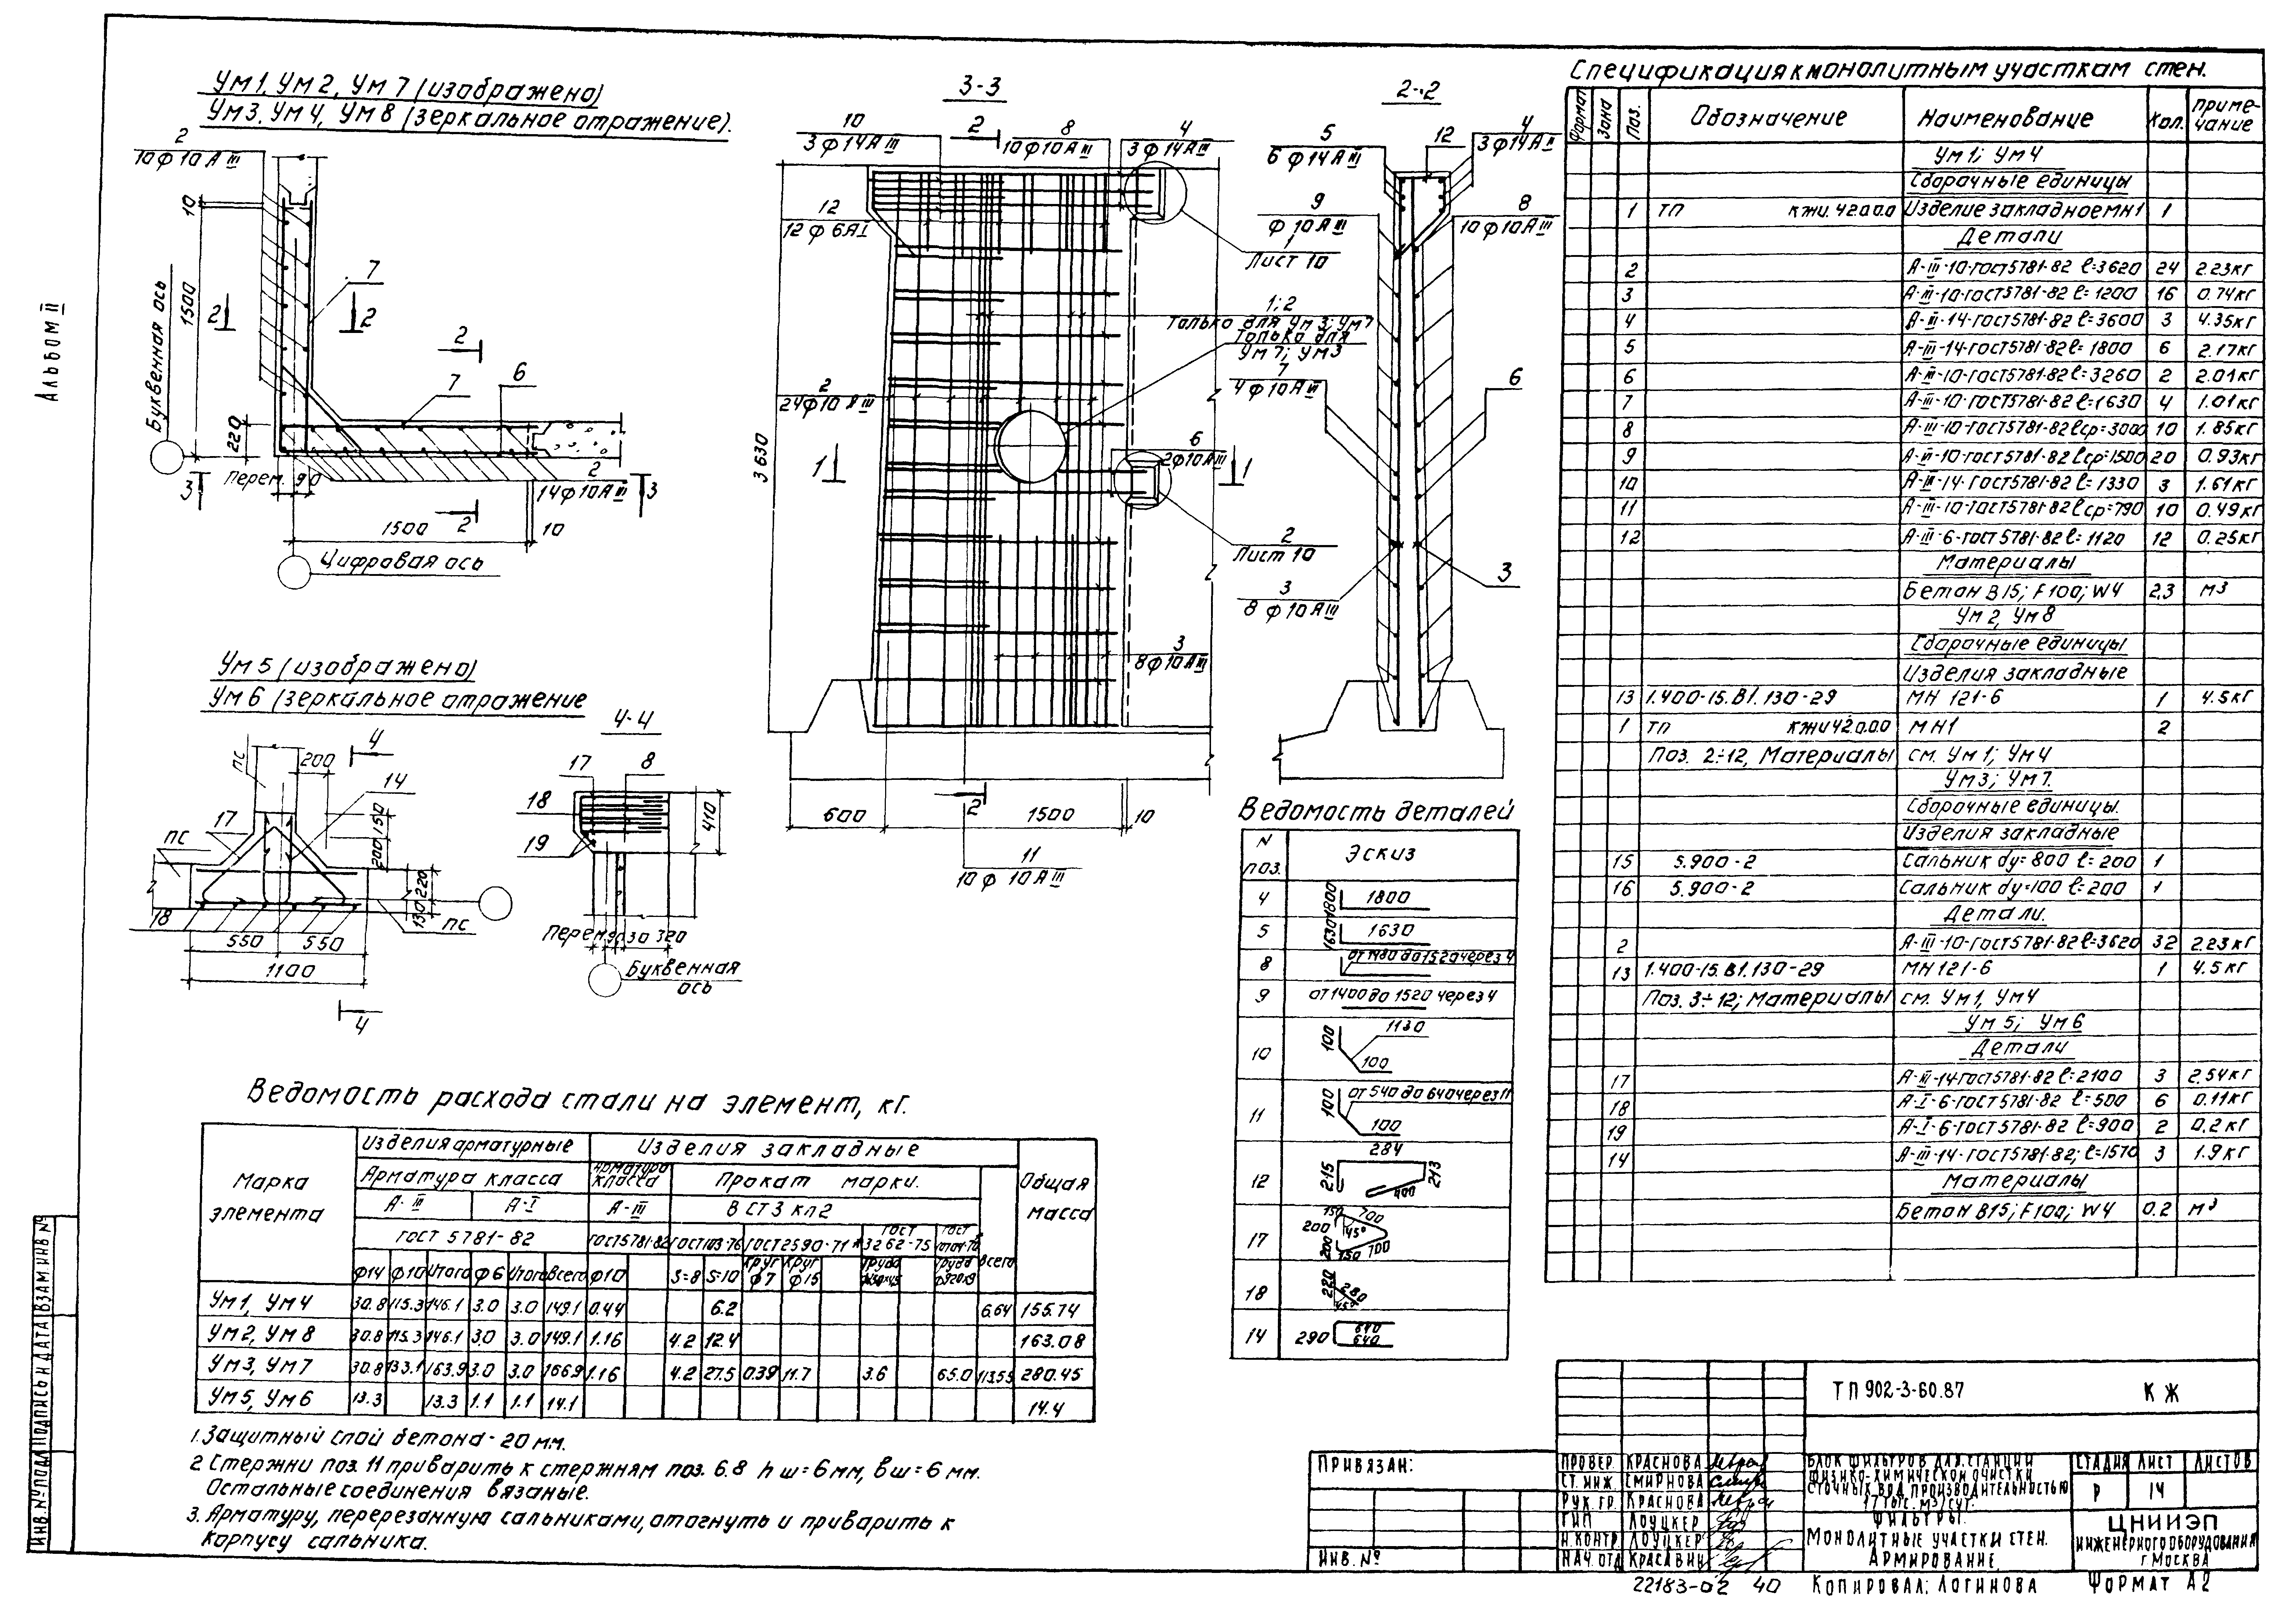 Альбом II
Ум1, Ум2, Ум7 (изображено)
Ум3, Ум4, Ум8 (зеркальное отражение).
2
10ф10АIII
10
1500
Буквенная ось
220
Перем. 90
7
2
2
2
7
6
3
2
14ф10АIII
3
2
1500
10
Цифровая ось
3-3
10
3ф14АIII
2
8
10ф10АIII
4
3ф14АIII
12
12ф6АI
1
Лист 10
1;2
Только для Ум3; Ум7
Только для
Ум7; Ум3
2
24ф10АIII
3630
1
6
2ф10АIII
1
2
Лист 10
3
8ф10АIII
600
2
1500
10
11
10ф10АIII
2-2
5
6ф14АIII
12
4
3ф14АIII
9
ф10АIII
8
10ф10АIII
7
4ф10АIII
6
3
8ф10АIII
3
Ум5 (изображено)
Ум6 (зеркальное отражение
4
ПС
200
14
17
ПС
200 150
130 220
18
550
550
ПС
1100
4
4-4
17
8
18
19
410
Перем. 90 30 320
Буквенная
ось
Ведомость деталей
N
поз.
Эскиз
4 1800 1800
5 1630 1630
8 от 1480 до 1520 через 4
9 от 1400 до 1520 через 4
10 100 1130 100
11 100 от 540 до 640 через 11 100
12 284 215 213 400
17 150 700 200 45° 200 150 700
18 220 280 45°
14 290 640 640
Спецификация к монолитным участкам стен.
Формат Зона Поз. Обозначение Наименование Кол. Приме-
чание
Ум1; Ум4
Сборочные единицы
1 ТП КЖИ.42.0.0.0 Изделие закладное МН1 1
Детали
2 А-III-10-ГОСТ5781-82 ℓ=3620 24 2.23кг
3 А-III-10-ГОСТ5781-82 ℓ=1200 16 0.74кг
4 А-III-14-ГОСТ5781-82 ℓ=3600 3 4.35кг
5 А-III-14-ГОСТ5781-82 ℓ=1800 6 2.17кг
6 А-III-10-ГОСТ5781-82 ℓ=3260 2 2.01кг
7 А-III-10-ГОСТ5781-82 ℓ=1630 4 1.01кг
8 А-III-10-ГОСТ5781-82 ℓср=3000 10 1.85кг
9 А-III-10-ГОСТ5781-82 ℓср=1500 20 0.93кг
10 А-III-14-ГОСТ5781-82 ℓ=1330 3 1.61кг
11 А-III-10-ГОСТ5781-82 ℓср=790 10 0.49кг
12 А-III-6-ГОСТ5781-82 ℓ=1120 12 0.25кг
Материалы
Бетон В15; F100; W4 2,3 м3
Ум2, Ум8
Сборочные единицы
Изделия закладные
13 1.400-15.В1.130-29 МН 121-6 1 4.5кг
1 ТП КЖИ 42.0.0.0 МН1 2
Поз. 2÷12, Материалы см. Ум1; Ум4
Ум3; Ум7.
Сборочные единицы.
Изделия закладные
15 5.900-2 Сальник dy=800 ℓ=200 1
16 5.900-2 Сальник dy=100 ℓ=200 1
Детали.
2 А-III-10-ГОСТ5781-82 ℓ=3620 32 2.23кг
13 1.400-15.В1.130-29 МН121-6 1 4.5кг
Поз. 3÷12; Материалы см. Ум1, Ум4
Ум5; Ум6
Детали
17 А-III-14-ГОСТ5781-82 ℓ=2100 3 2,54кг
18 А-I-6-ГОСТ5781-82 ℓ=500 6 0.11кг
19 А-I-6-ГОСТ5781-82 ℓ=900 2 0,2кг
14 А-III-14-ГОСТ5781-82; ℓ=1570 3 1.9кг
Материалы
Бетон В15; F100; W4 0.2 м3
Ведомость расхода стали на элемент, кг.
Марка
элемента
Изделия арматурные Изделия закладные Общая
масса
Арматура класса Арматура
класса Прокат марки.
А-III А-I А-III ВСТ3 кп2
ГОСТ 5781-82 ГОСТ5781-82 ГОСТ103-76 ГОСТ2590-71* ГОСТ
3262-75 ГОСТ
Ф14 Ф10 Итого Ф6 Итого Всего Ф10 S=8 S=10 Круг
Ф7 Круг
Ф15 Труба Труба
Ф920х9 Всего
Ум1, Ум4 30.8 115.3 146.1 3.0 3.0 149.1 0.44 6.2 6.64 155.74
Ум2, Ум8 30.8 115.3 146.1 3.0 3.0 149.1 1.16 4.2 12.4 163.08
Ум3, Ум7 30.8 133.1 163.9 3.0 3.0 166.9 1.16 4.2 27.5 0.39 11.7 3.6 65.0 113.55 280.45
Ум5, Ум6 13.3 13.3 1.1 1.1 14.1 14.4
1. Защитный слой бетона - 20 мм.
2. Стержни поз. 11 приварить к стержням поз. 6.8 hш=6мм, вш=6мм.
Остальные соединения вязаные.
3. Арматуру, перерезанную сальниками, отогнуть и приварить к
корпусу сальника.
Инв.№подл Подпись и дата Взам.инв№
Привязан:
Инв.№
ТП 902-3-60.87 КЖ
Провер. Краснова
Ст.инж Смирнова
Рук.гр. Краснова
ГИП Лоуцкер
Н.контр Лоуцкер
Нач.отд Красавин
Блок фильтров для станции
физико-химической очистки
сточных вод производительностью
17 тыс. м3/сут.
Фильтры.
Монолитные участки стен.
Армирование
Стадия Лист Листов
Р 14
ЦНИИЭП
инженерного оборудования
г.Москва
22183-02 40 Копировал: Логинова Формат А2